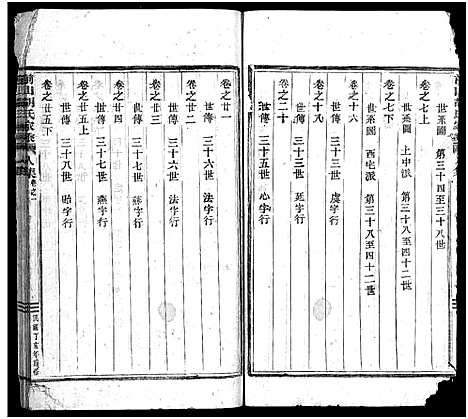 世系圖　第三十四至三十八世
卷之七上
世系圖　上中派　第三十八至四十二世
卷之七下
世系圖　西宅派　第三十八至四十二世
卷之十六
世傳　三十三世　虞字行
卷之十九
世傳　三十三世　廷字行
卷之二十
世傳　三十五世　心字行
卷之廿一
世傳　三十六世　法字行
卷之廿三
世傳　三十六世　法字行
卷之廿四
世傳　三十七世　燕字行
卷之廿五上
世傳　三十七世　燕字行
卷之廿五下
世傳　三十八世　貽字行
山胡氏家乘
卷之一
民國丁亥年